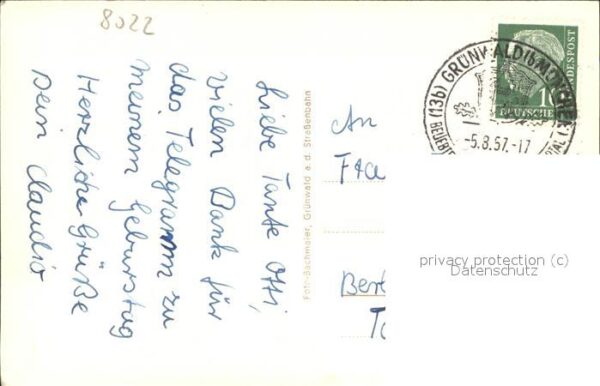 8022
Liebe Tante Otti,
vielen Dank für
das Telegramm zu
meinem Geburtstag
Herzliche Grüße
Dein Claudio
Foto-Bachmaier, Grünwald a. d. Straßenbahn
An
Frau
Bert
DEUTSCHE BUNDESPOST
10
(13b) GRÜNWALD b. MÜNCHEN
-5.8.57.-17
privacy protection (c)
Datenschutz